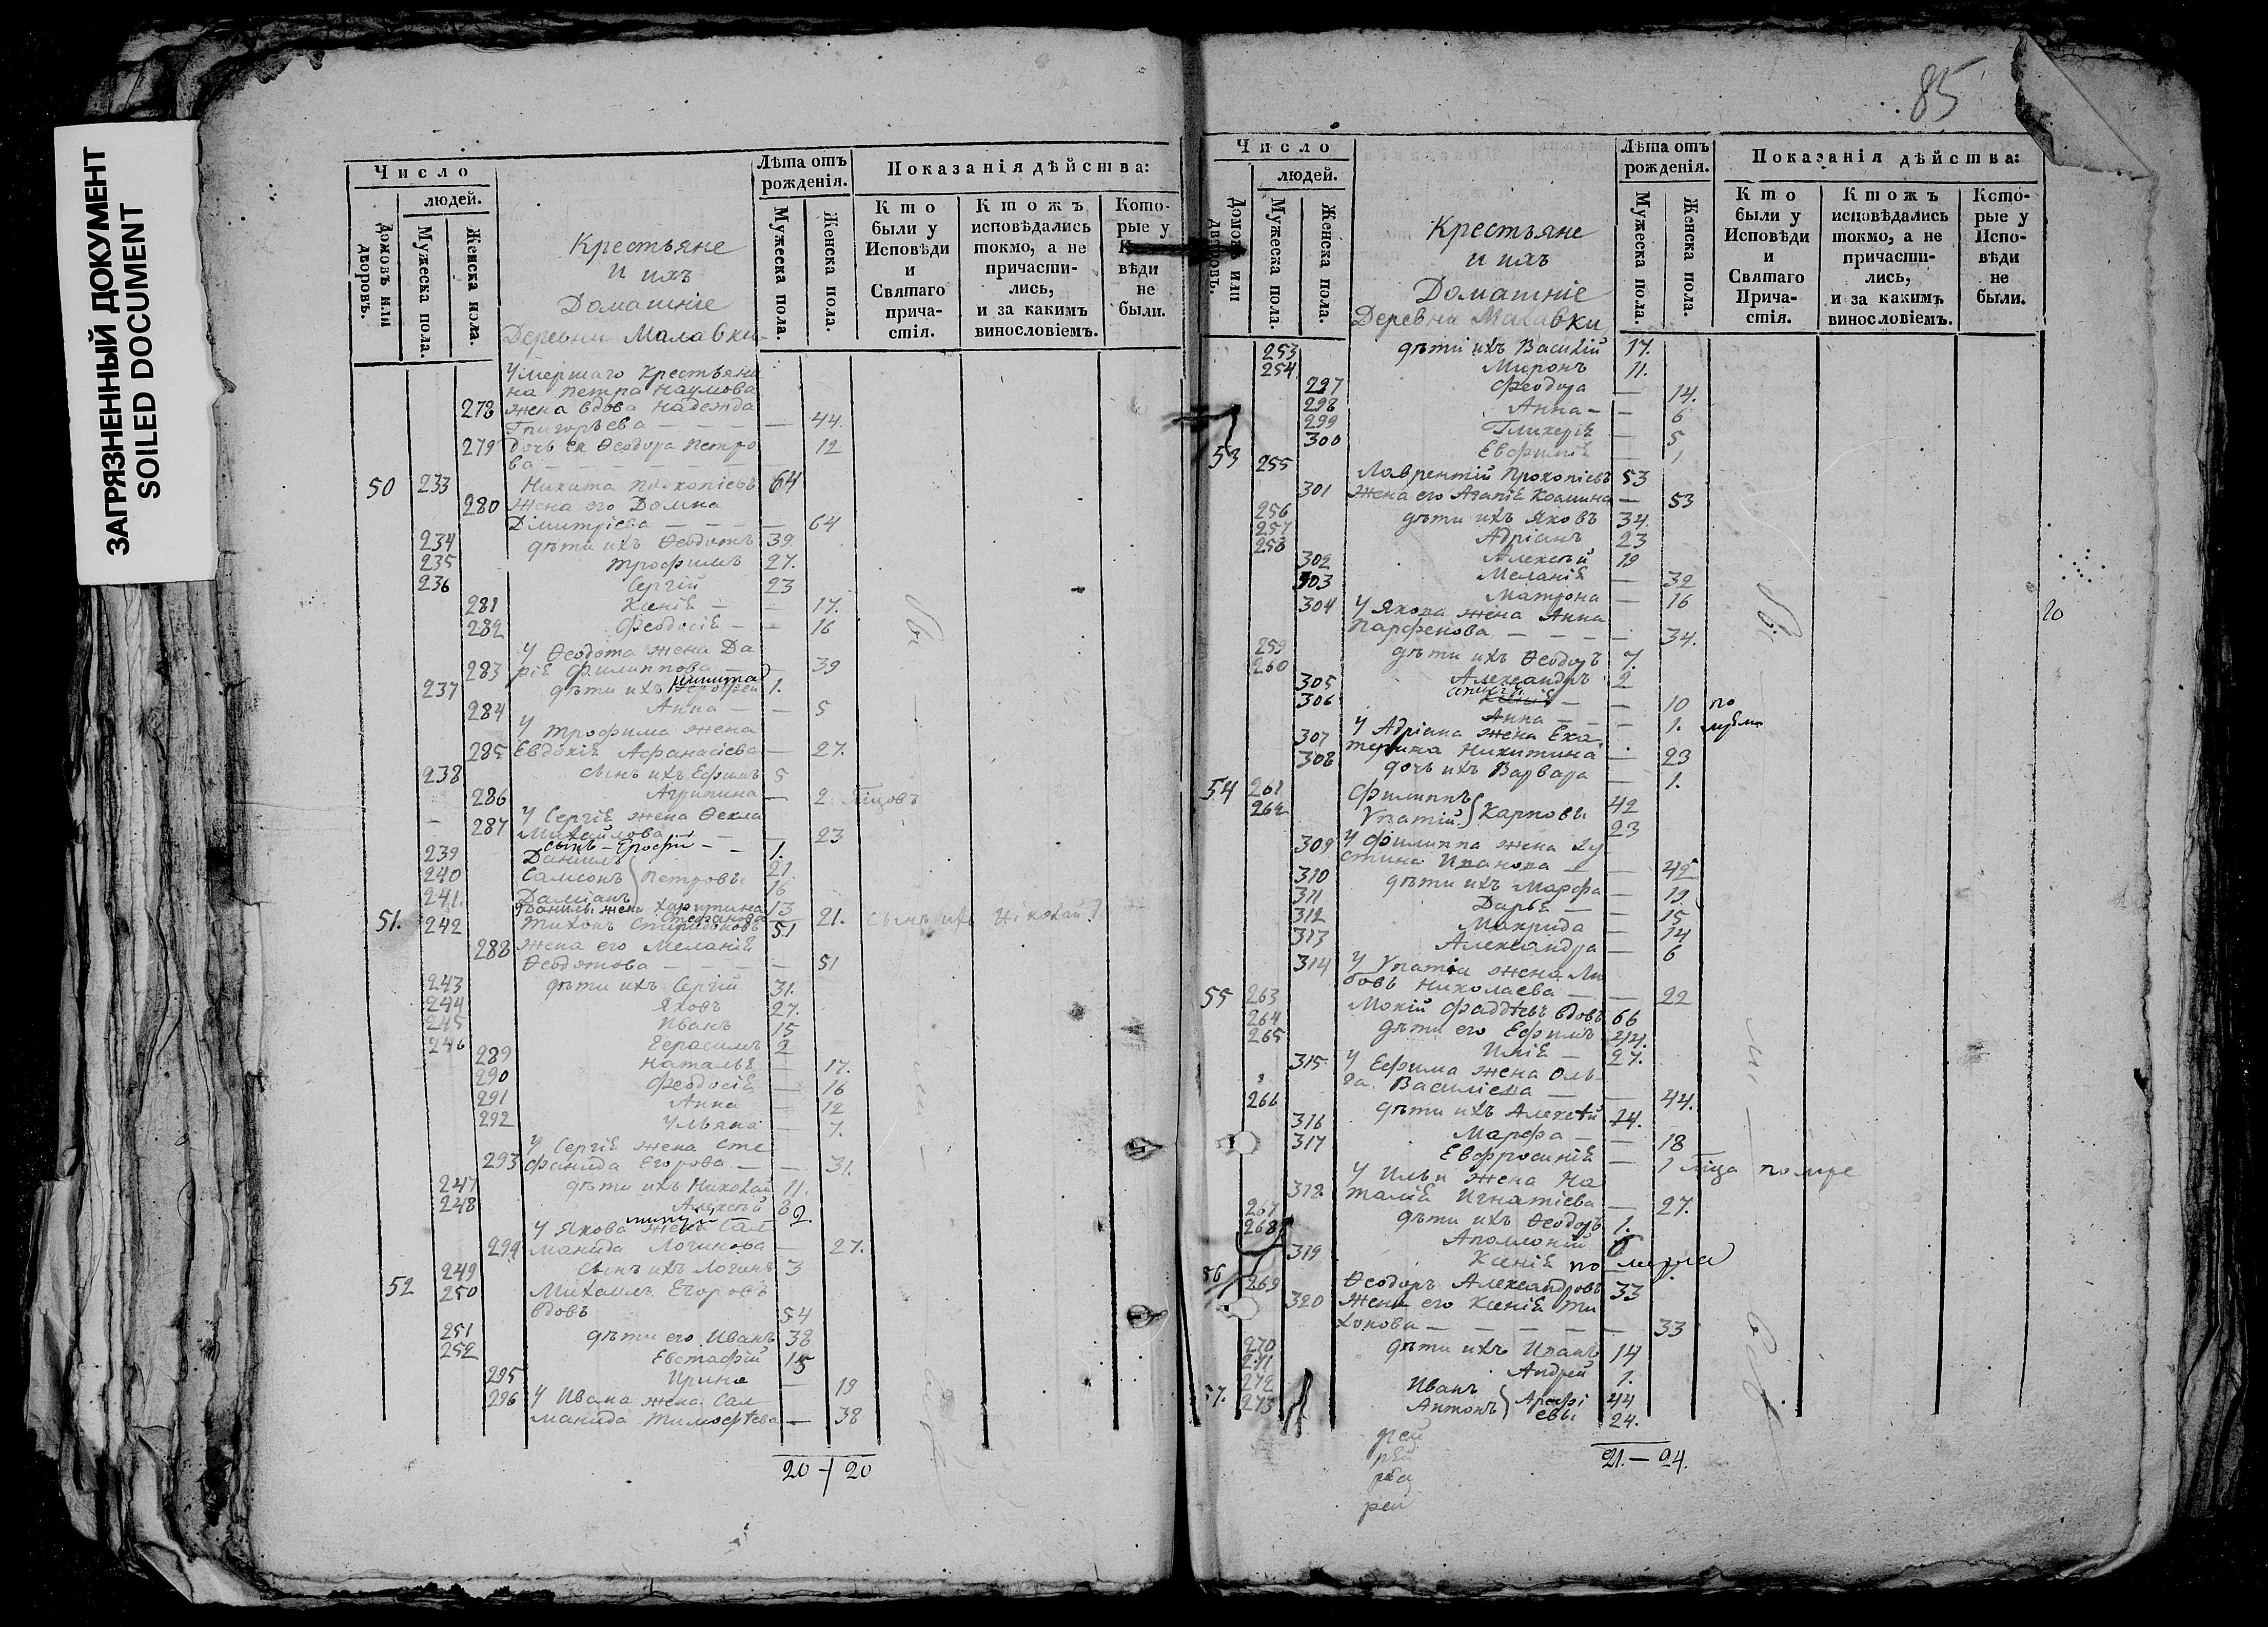 ЗАГРЯЗНЕННЫЙ ДОКУМЕНТ
SOILED DOCUMENT
Число
людей.
Домовъ или дворовъ.
Мужеска пола.
Женска пола.
Крестьяне
и ихъ
Домашніе
Деревни Малавки
Лѣта отъ рожденія.
Мужеска пола.
Женска пола.
Показанія дѣйства:
Кто были у Исповѣди и Святаго причастія.
Ктожъ исповѣдались токмо, а не причастились, и за какимъ винословіемъ.
Которые у вѣди не были.
Умершаго Крестьяни
на Петра Наумова
278 жена вдова Надежда
Григорьева — — — — 44.
279 дочь ея Ѳеодора Петро 12
ва — — — —
50 233 Никита Прокопіевъ 64
280 жена его Домна
Димитріева — — — — 64
234 дѣти ихъ Ѳеодотъ 39.
235 Трофимъ 27.
236 Сергій 23
281 Ксенія — — 17.
282 Феодосія — — 16
У Ѳеодота жена Да
283 рія Филиппова — — 39
Никита
237 дѣти ихъ 1.
284 Анна — — 5
У Трофима жена
285 Евдокія Афанасіева — 27.
238 сынъ ихъ Ефимъ 5
286 Агрипина — 2
У Сергія жена Ѳекла
287 Михайлова — — 23
сынъ — Ерофей — — 1.
239 Даніилъ 21.
240 Самсонъ } Петровы 16
241. Даміанъ 13
У Даніилы жена Харитина
Стефанова 21. сынъ ихъ Николай 1
51. 242 Тихонъ Спиридоновъ 51
288 жена его Меланія
Ѳеодотова — — — — 51
243 дѣти ихъ Сергій 31.
244 Яковъ 27.
245 Иванъ 15
246 Герасимъ 2
289 Наталья — 17.
290 Феодосія — 16
291 Анна — 12
292 Ульяна — 7.
У Сергія жена Сте
293 фанида Егорова — — 31.
247 дѣти ихъ Николай 11.
248 Алексѣй 8 2
У Якова жена Сал
294 манида Логинова — 27.
249 сынъ ихъ Логинъ 3
52 250 Михаилъ Егоровъ
вдовъ 54
251 дѣти его Иванъ 38
252 Евстафій 15
295 Ирина — 19
296 У Ивана жена Сал
манида Тимофѣева — 38
20 — 20
85
Число
людей.
Домовъ или дворовъ.
Мужеска пола.
Женска пола.
Крестьяне
и ихъ
Домашніе
Деревни Малавки
Лѣта отъ рожденія.
Мужеска пола.
Женска пола.
Показанія дѣйства:
Кто были у Исповѣди и Святаго Причастія.
Ктожъ исповѣдались токмо, а не причастились, и за какимъ винословіемъ.
Которые у Исповѣди не были.
253 дѣти ихъ Василій 17.
254 Миронъ 11.
297 Феодора — 14.
298 Анна — — 6
299 Гликерія — 5
300 Евфимія — 1
53 255 Лаврентій Прокопіевъ 53
301 жена его Агапія Козмина — 53
256 дѣти ихъ Яковъ 34.
257 Адріанъ 23
258 Алексѣй 19
302 Меланія — 32
303 Матрона — 16
304 У Якова жена Анна
Парфенова — — — — 34.
259 дѣти ихъ Ѳеодоръ 7.
260 Александръ 2
305 Ксенія — — 10
306 Анна — — — 1.
307 У Адріана жена Ека
терина Никитина — 23
308 дочь ихъ Варвара — 1.
54 261 Филиппъ } Карповы 42
262 Ипатій 23
309 У Филиппа жена
Иванова — — 42
310 дѣти ихъ Марфа — 19.
311 Дарья — — 15
312 Макрида — 14
313 Александра — 6
314 У Ипатія жена Лю
бовь Николаева — — 22
55 263 Мокій Фаддѣевъ вдовъ 66
264 дѣти его Ефимъ 44.
265 Илія — 27.
315 У Ефима жена Оль
га Василіева — — 44.
266 дѣти ихъ Алексѣй 14.
316 Марфа — — 18
317 Евфросинія — 1
У Ильи жена На
318 талія Игнатіева — 27.
267 дѣти ихъ Ѳеодоръ 1.
268 Аполлоній
319 Ксенія померла
56 269 Ѳеодоръ Александровъ 33
320 жена его Ксенія Ти
хонова — — — — 33
270 дѣти ихъ Иванъ 14
271 Андрей 1.
57. 272 Иванъ } Арефі 44
273 Антонъ евы 24.
21. — 24.
20